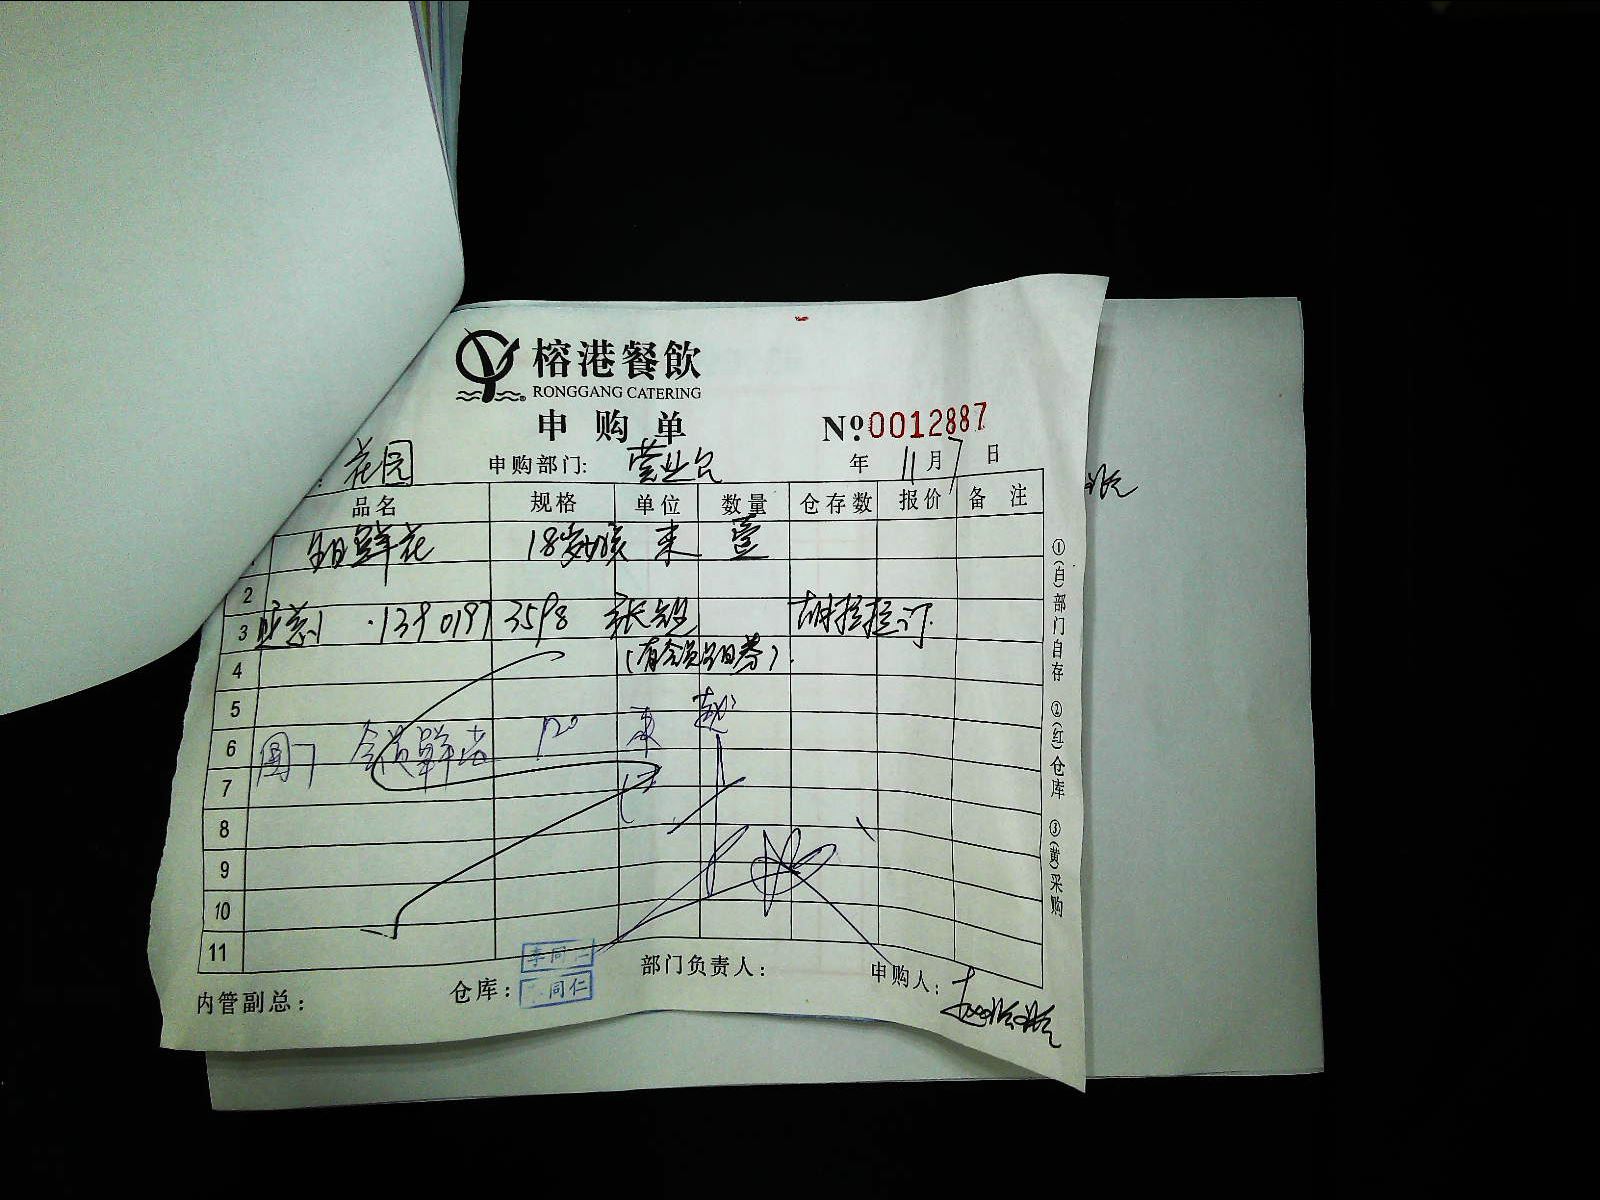 榕港餐飲
RONGGANG CATERING
申购单 №:0012887
花园 申购部门: 营业台 年 11月7日
品名 规格 单位 数量 仓存数 报价 备注
生日鲜花 18岁女孩 束 壹
2
3 1390197 3598 张 胡拉拉订.
4 (有会员生日券).
5
6 会员鲜花 束
7
8
9
10
11
内管副总: 仓库: 李同仁 同仁 部门负责人: 申购人:
①(白)部门自存 ②(红)仓库 ③(黄)采购